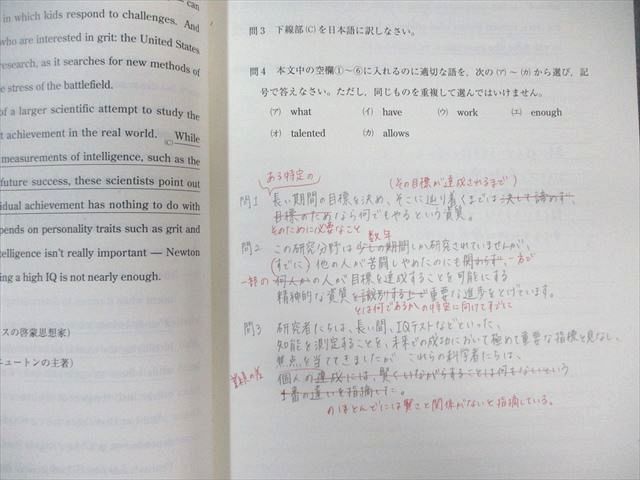 can
in which kids respond to challenges. And
who are interested in grit: the United States
research, as it searches for new methods of
the stress of the battlefield.
of a larger scientific attempt to study the
t achievement in the real world. While
(C)
measurements of intelligence, such as the
future success, these scientists point out
idual achievement has nothing to do with
pends on personality traits such as grit and
telligence isn't really important — Newton
ing a high IQ is not nearly enough.
スの啓蒙思想家)
ニュートンの主著)
問3 下線部(C)を日本語に訳しなさい。
問4 本文中の空欄①~⑥に入れるのに適切な語を、次の(ア)~(カ)から選び、記
号で答えなさい。ただし、同じものを重複して選んではいけません。
(ア) what (イ) have (ウ) work (エ) enough
(オ) talented (カ) allows
ある特定の
(その目標が達成されるまで)
問1 長い期間の目標を決め、そこに辿り着くまでは決して諦めず、
目標のためなら何でもやるという資質。
そのために必要なこと
数年
問2 この研究分野は少しの期間しか研究されていませんが、
(すでに) 他の人が苦闘しやめたのにも関わらず、一方で
一部の 何人かの人が目標を達成することを可能にする
精神的な資質を識別する上で重要な進歩をとげています。
とは何であるかの特定に向けてすでに
問3 研究者たちは、長い間、IQテストなどといった、
知能を測定することを、未来での成功において極めて重要な指標と見なし、
焦点を当ててきましたが これらの科学者たちは、
個人の達成には、賢くいながらすることは何もないという
1番の違いを指摘した。
のほとんどには賢さと関係がないと指摘している。